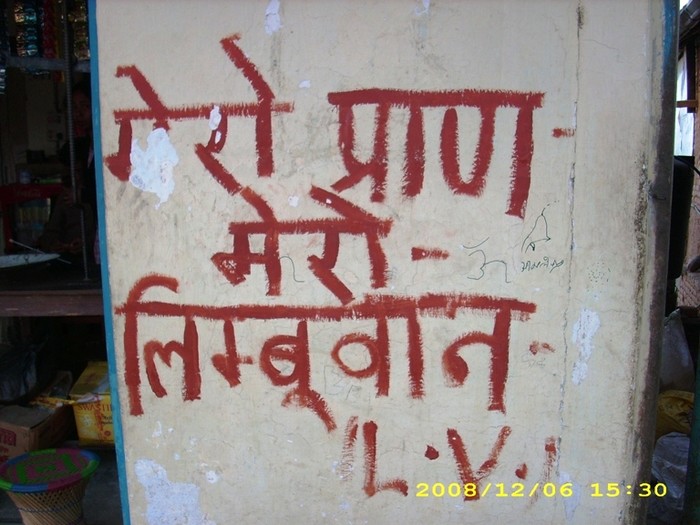 मेरो प्राण -
मेरो -
लिम्बूवान -
"L.V."
2008/12/06 15:30